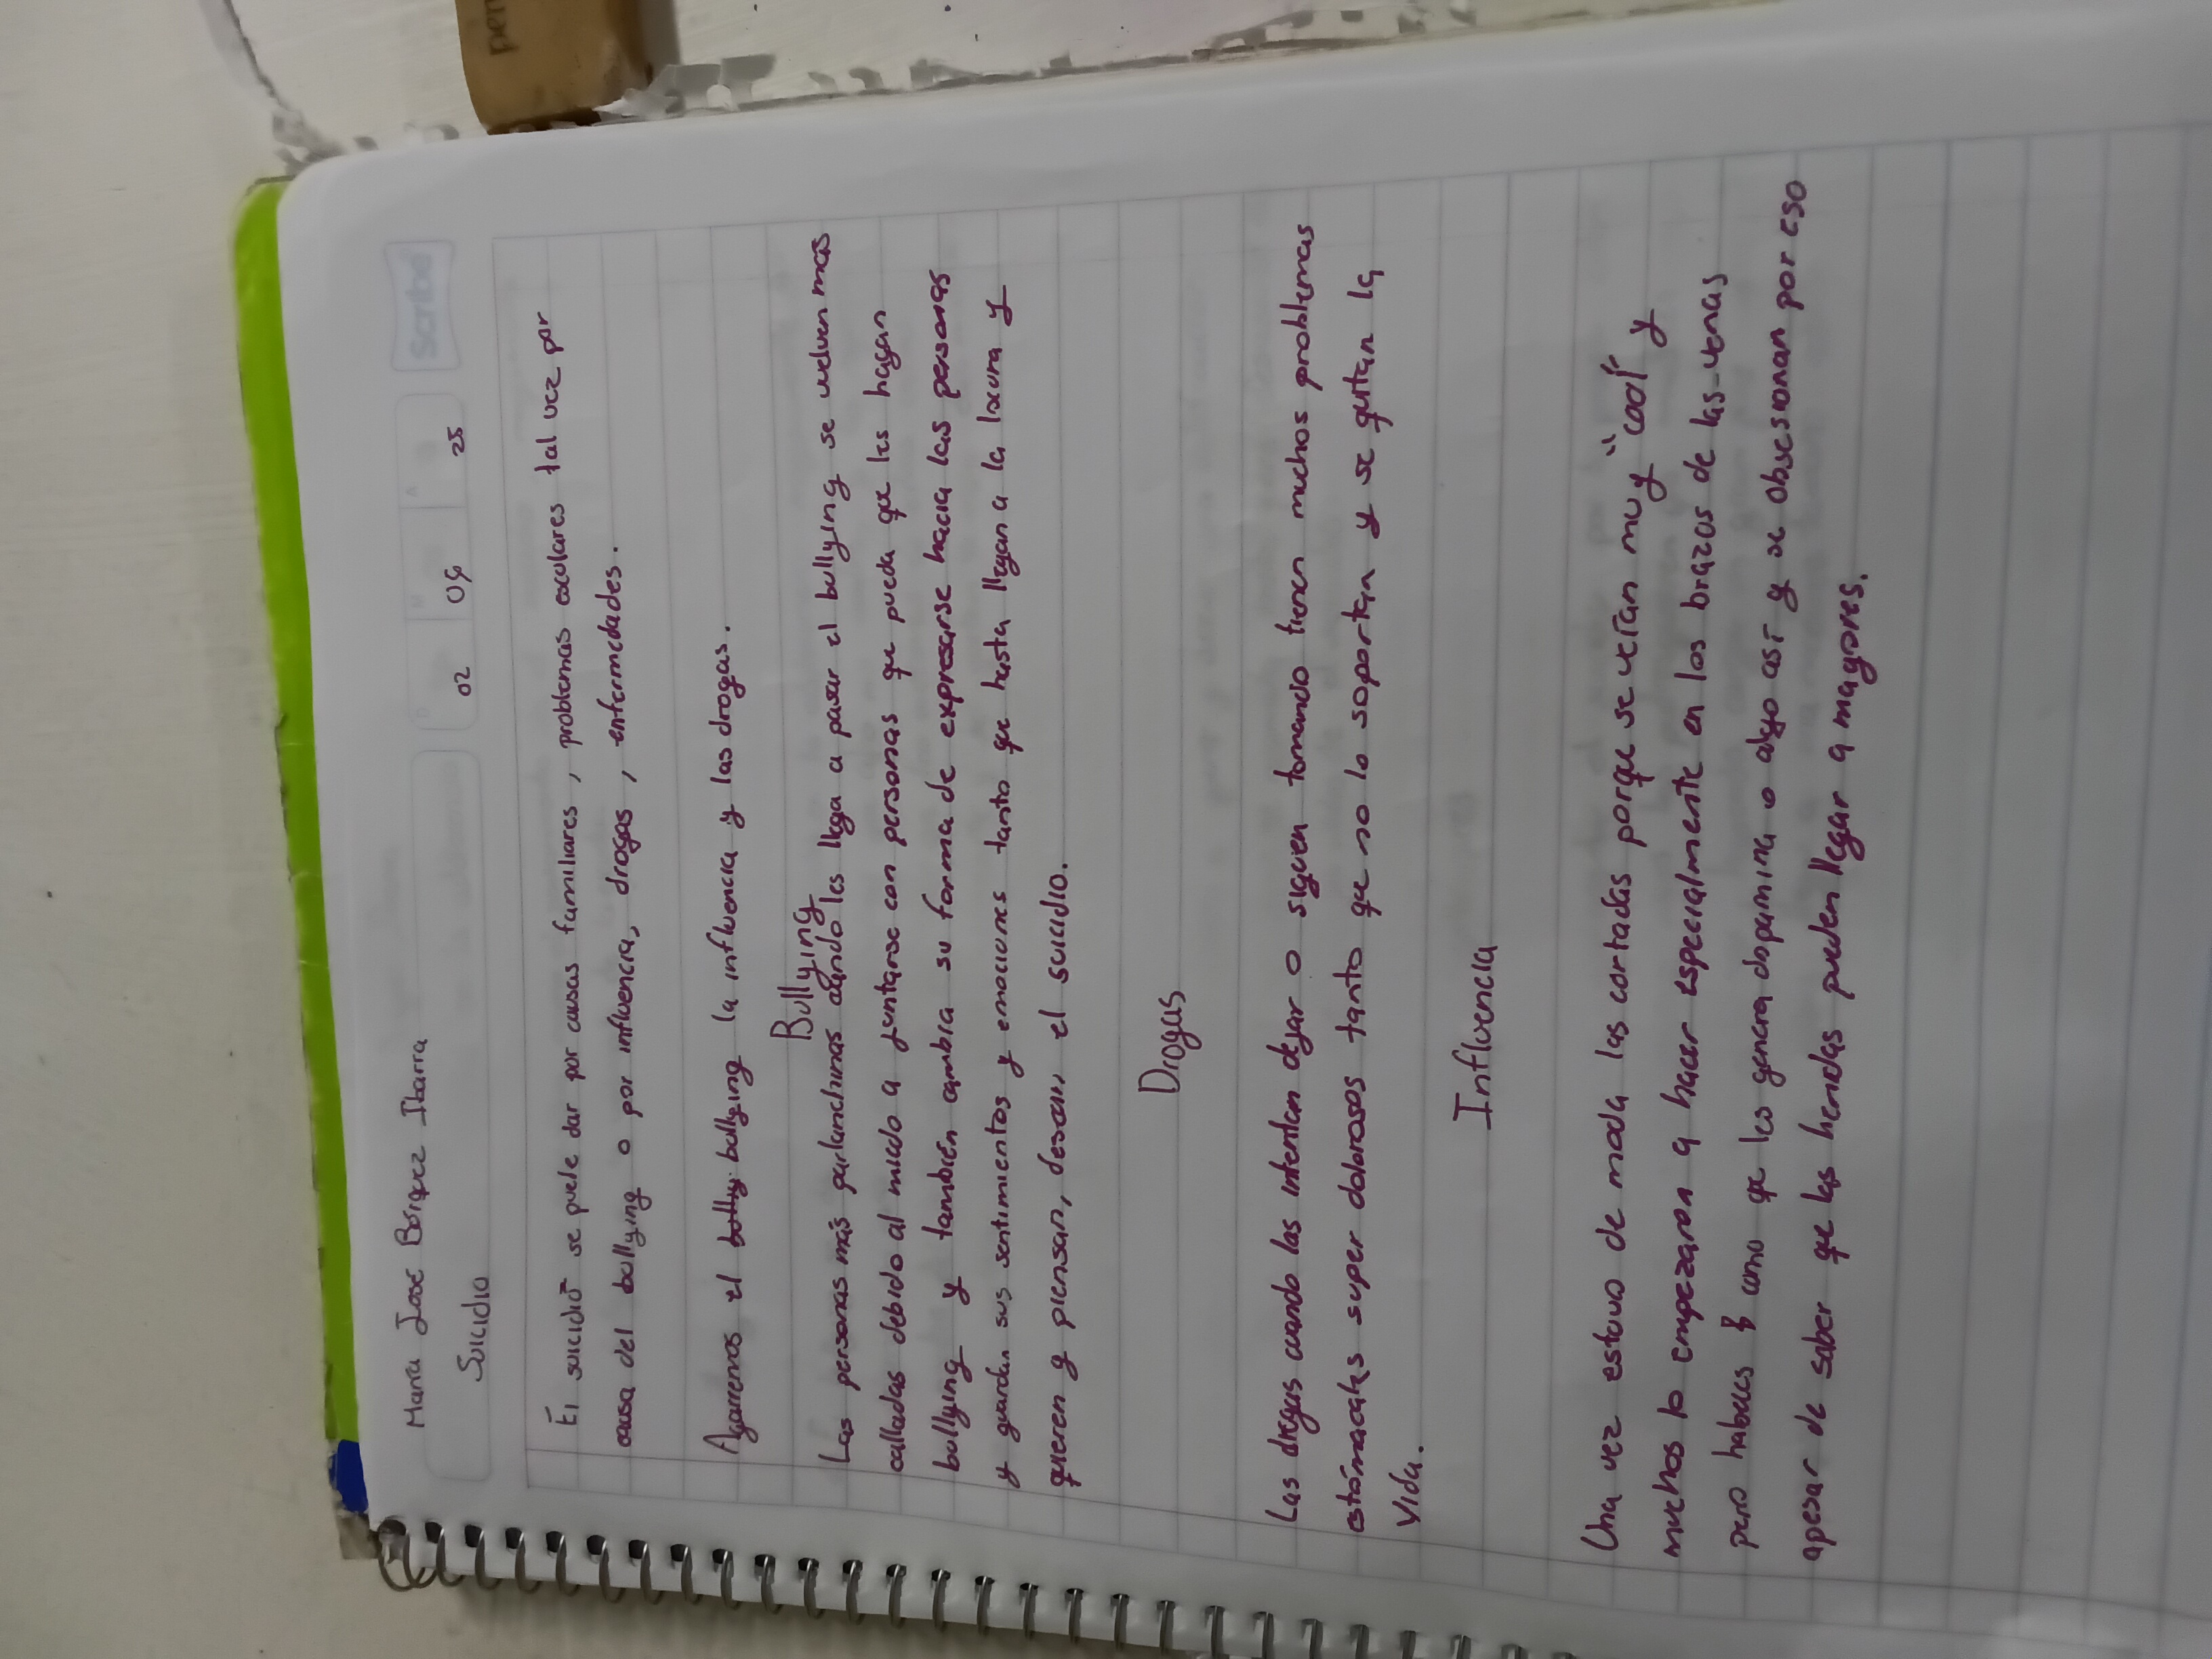 Maria Jose Borquez Ibarra
Suicidio
02 09 25
Scribe
El suicidio se puede dar por causas familiares, problemas escolares tal vez por
causa del bullying o por influencia, drogas, enfermedades.
Agarremos el bully bullying la influencia y las drogas.
Bullying
Las personas más parlanchinas cuando les llega a pasar el bullying se vuelven mas
calladas debido al miedo a juntarse con personas que pueda que les hagan
bullying y también cambia su forma de expresarse hacia las personas
y guardan sus sentimientos y emociones tanto que hasta llegan a la locura y
quieren y piensan, desean el suicidio.
Drogas
Las drogas cuando las intentan dejar o siguen tomando tienen muchos problemas
estómacales super dolorosos tanto que no lo soportan y se quitan la
vida.
Influencia
Una vez estuvo de moda las cortadas porque se veían muy "cool" y
muchos lo empezaron a hacer especialmente en los brazos de las venas
pero habeces como que les genera dopamina o algo así y se obsesionan por eso
apesar de saber que las heridas pueden llegar a mayores.
pen